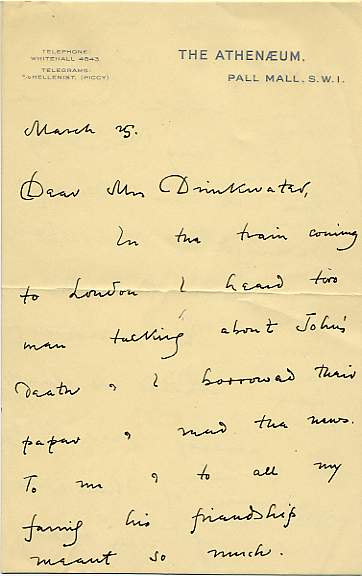 TELEPHONE:
WHITEHALL 4843.
TELEGRAMS:
"HELLENIST, (PICCY)
THE ATHENÆUM.
PALL MALL. S.W.1.
March 25.
Dear Mrs Drinkwater,
In the train coming
to London I heard two
men talking about John's
death & I borrowed their
paper & read the news.
To me & to all my
family his friendship
meant so much.